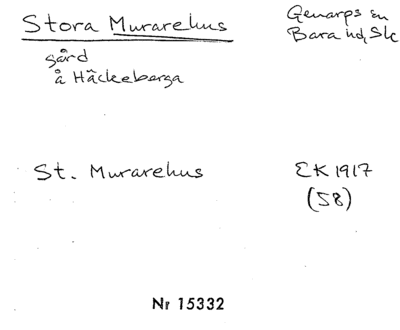 Stora Murarehus
Genarps sn
Bara hd, Sk
gård
å Häckeberga
St. Murarehus
EK 1917
(58)
Nr 15332